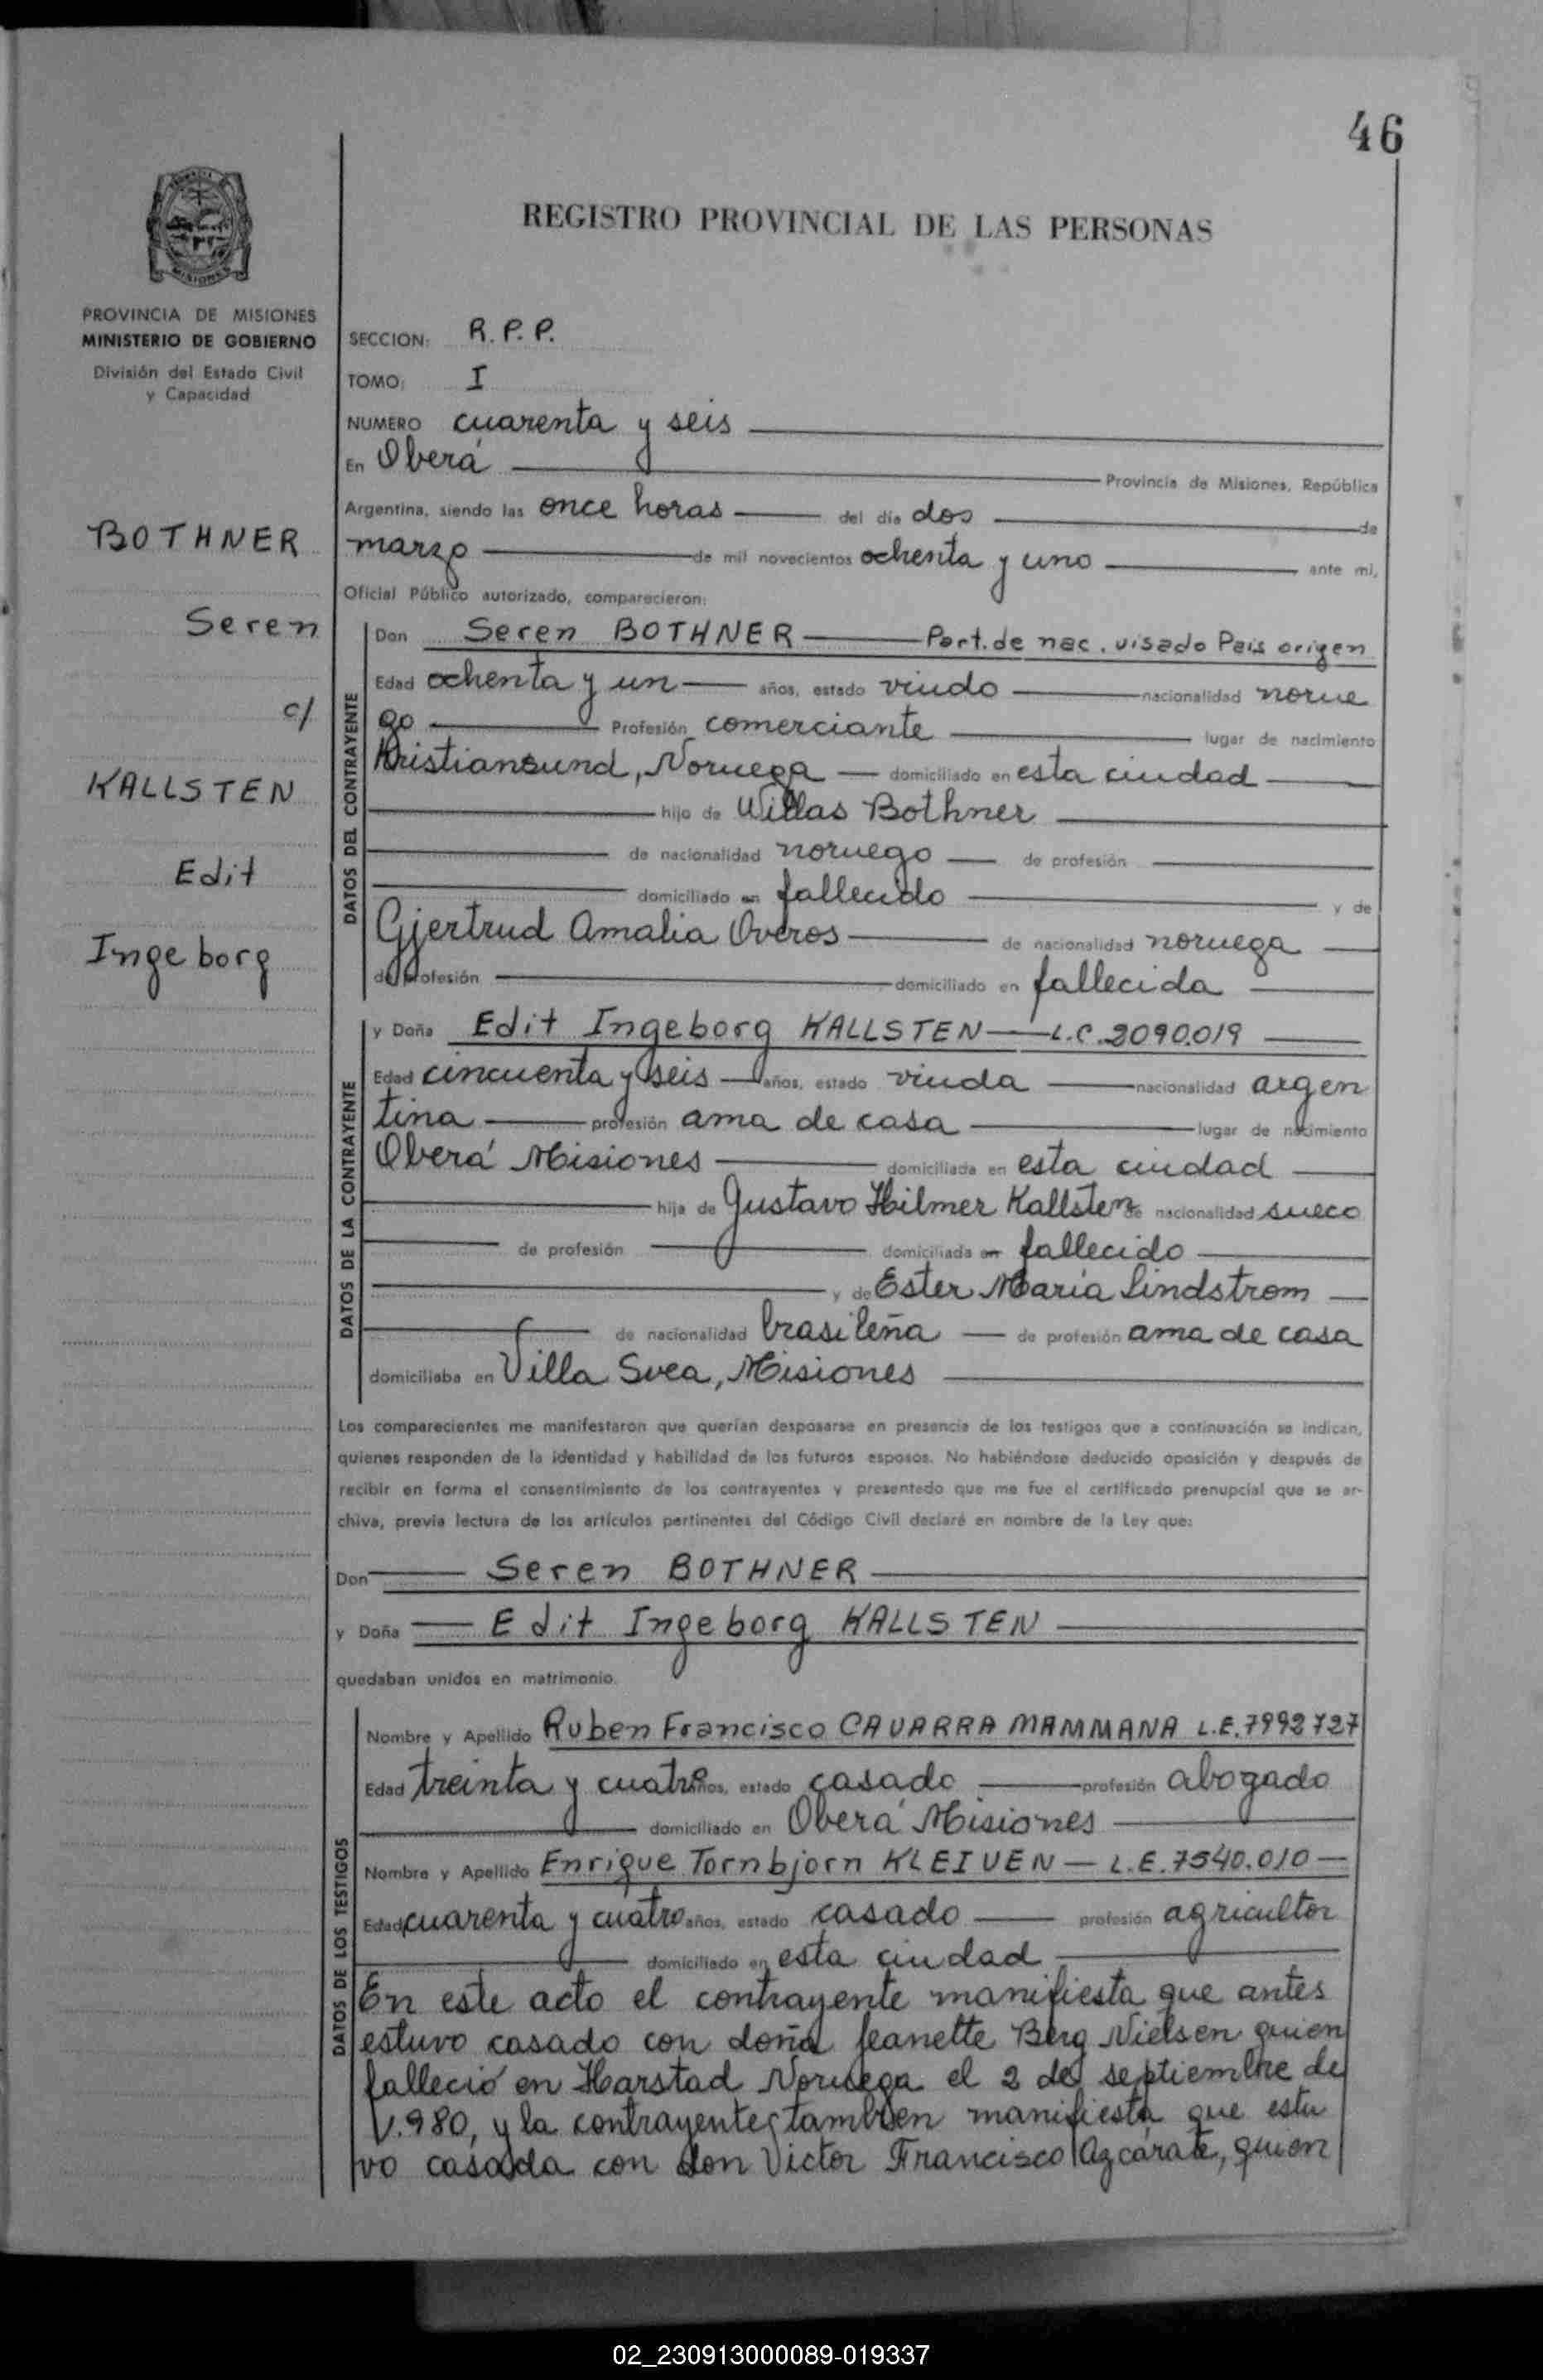 46
REGISTRO PROVINCIAL DE LAS PERSONAS
MISIONES
PROVINCIA DE MISIONES
MINISTERIO DE GOBIERNO
División del Estado Civil
y Capacidad
BOTHNER
Seren
c/
KALLSTEN
Edit
Ingeborg
SECCION: R.P.P.
TOMO: I
NUMERO cuarenta y seis
En Oberá Provincia de Misiones, República
Argentina, siendo las once horas del día dos de
marzo de mil novecientos ochenta y uno ante mi,
Oficial Público autorizado, comparecieron:
DATOS DEL CONTRAYENTE
Don Seren BOTHNER Part. de nac. visado Pais origen
Edad ochenta y un años, estado viudo nacionalidad norue
go Profesión comerciante lugar de nacimiento
Kristiansund, Noruega domiciliado en esta ciudad
hijo de Willas Bothner
de nacionalidad noruego de profesión
domiciliado en fallecido y de
Gjertrud Amalia Overos de nacionalidad noruega
de profesión domiciliado en fallecida
DATOS DE LA CONTRAYENTE
y Doña Edit Ingeborg KALLSTEN L.C. 2090.019
Edad cincuenta y seis años, estado viuda nacionalidad argen
tina profesión ama de casa lugar de nacimiento
Oberá Misiones domiciliada en esta ciudad
hija de Gustavo Hilmer Kallsten de nacionalidad sueco
de profesión domiciliada en fallecido
y de Ester María Lindstrom
de nacionalidad brasileña de profesión ama de casa
domiciliaba en Villa Svea, Misiones
Los comparecientes me manifestaron que querían desposarse en presencia de los testigos que a continuación se indican,
quienes responden de la identidad y habilidad de los futuros esposos. No habiéndose deducido oposición y después de
recibir en forma el consentimiento de los contrayentes y presentado que me fue el certificado prenupcial que se ar-
chiva, previa lectura de los artículos pertinentes del Código Civil declaré en nombre de la Ley que:
Don Seren BOTHNER
y Doña Edit Ingeborg KALLSTEN
quedaban unidos en matrimonio.
DATOS DE LOS TESTIGOS
Nombre y Apellido Ruben Francisco CAVARRA MAMMANA L.E. 7992727
Edad treinta y cuatro años, estado casado profesión abogado
domiciliado en Oberá Misiones
Nombre y Apellido Enrique Tornbjorn KLEIVEN L.E. 7540.010
Edad cuarenta y cuatro años, estado casado profesión agricultor
domiciliado en esta ciudad
En este acto el contrayente manifiesta que antes
estuvo casado con doña Jeanette Berg Nielsen quien
falleció en Harstad Noruega el 2 de septiembre de
1.980, y la contrayente tambien manifiesta que estu
vo casada con don Victor Francisco Azcárate, quien
02_230913000089-019337